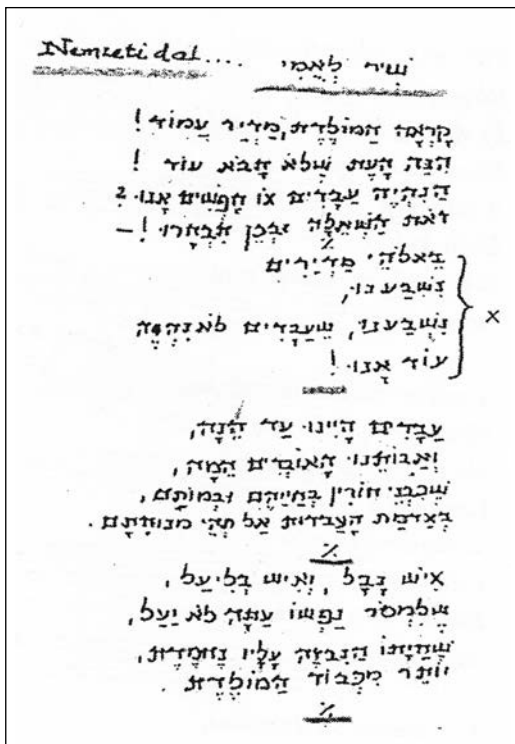 Nemzeti dal.... שִׁיר לְאֻמִּי
קָרְאָה הַמּוֹלֶדֶת, מַדְיַר עֲמוֹד !
הִנֵּה הָעֵת שֶׁלֹּא תָבֹא עוֹד !
הֲנִהְיֶה עֲבָדִים אוֹ חָפְשִׁים אָנוּ ?
זֹאת הַשְּׁאֵלָה וּבְכֵן תִּבְחָרוּ ! –
٪
בֵּאלֹהֵי מַדְיָרִים
נִשְׁבַּעְנוּ,
נִשְׁבַּעְנוּ, שֶׁעֲבָדִים לֹא נִהְיֶה x
עוֹד אָנוּ !
עֲבָדִים הָיִינוּ עַד הֵנָּה,
וַאֲבוֹתֵנוּ הָאוֹבְדִים הֵמָּה,
שֶׁכִּבְנֵי חוֹרִין בְּחַיֵּיהֶם וּבְמוֹתָם,
בְּאַדְמַת הָעַבְדוּת אַל תְּהִי מְנוּחָתָם .
٪
אִישׁ נָבָל, וְאִישׁ בְּלִיַּעַל,
שֶׁלִּמְסֹר נַפְשׁוֹ עַתָּה לֹא יַעַל,
שֶׁחַיָּתוֹ הַנִּבְזָה עָלָיו נֶחְמֶדֶת,
יוֹתֵר מִכְּבוֹד הַמּוֹלֶדֶת.
٪